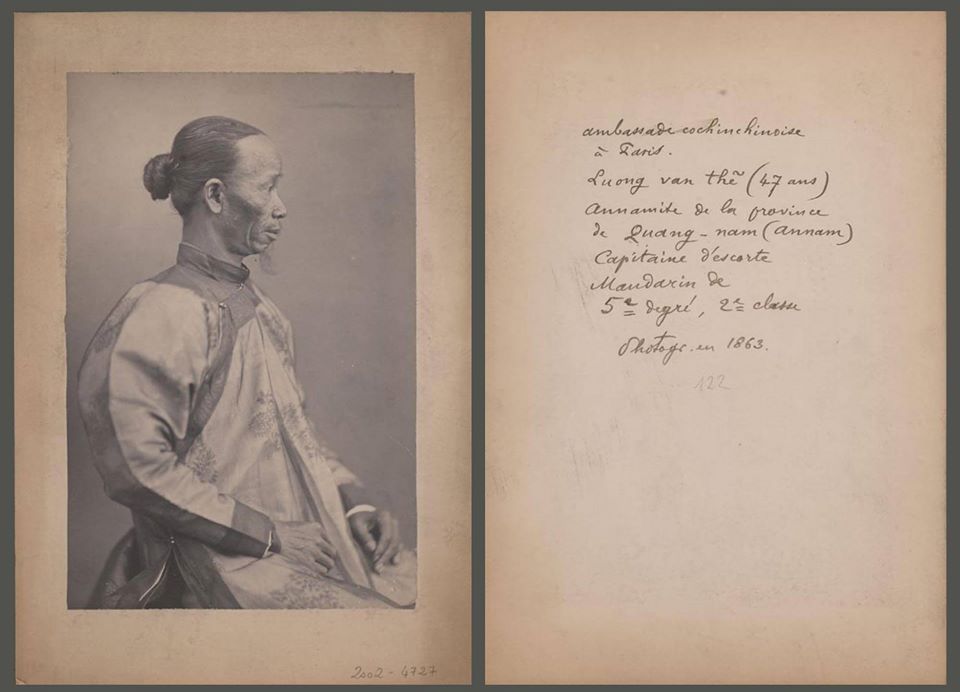 2002 - 4727
ambassade cochinchinoise
à Paris.
Luong van thễ (47 ans)
Annamite de la province
de Quang-nam (Annam)
Capitaine d'escorte
Mandarin de
5e degré, 2e classe
Photogr. en 1863.
122